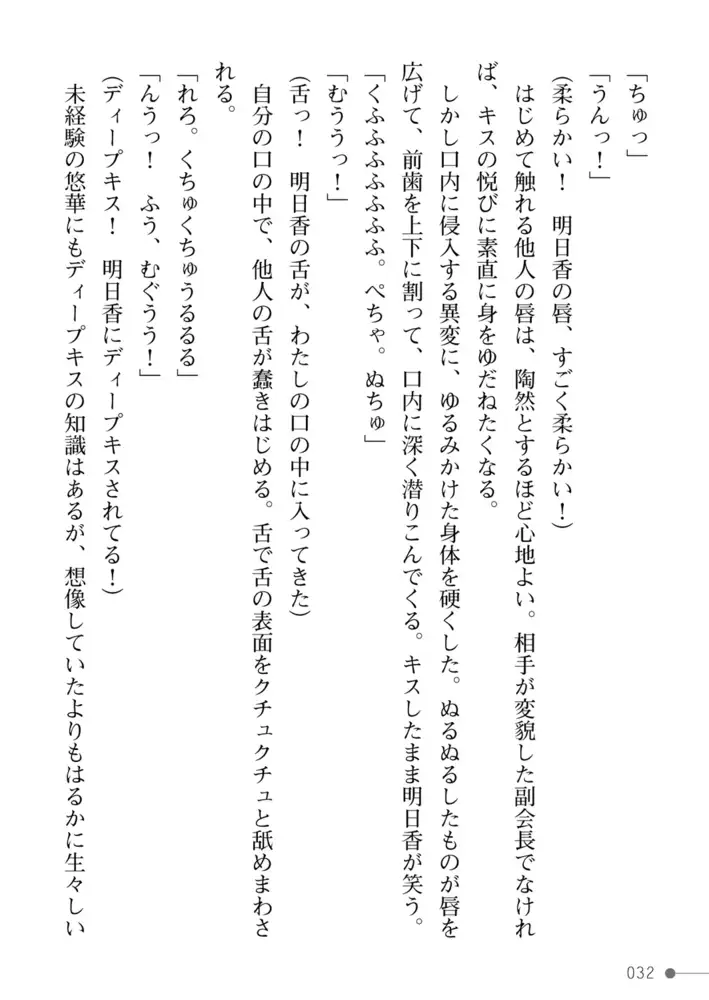 「ちゅっ」
「うんっ！」
(柔らかい！　明日香の唇、すごく柔らかい！)
　はじめて触れる他人の唇は、陶然とするほど心地よい。相手が変貌した副会長でなけれ
ば、キスの悦びに素直に身をゆだねたくなる。
　しかし口内に侵入する異変に、ゆるみかけた身体を硬くした。ぬるぬるしたものが唇を
広げて、前歯を上下に割って、口内に深く潜りこんでくる。キスしたまま明日香が笑う。
「くふふふふふふふ。ぺちゃ。ぬちゅ」
「むううっ！」
(舌っ！　明日香の舌が、わたしの口の中に入ってきた)
　自分の口の中で、他人の舌が蠢きはじめる。舌で舌の表面をクチュクチュと舐めまわさ
れる。
「れろ。くちゅくちゅうるるる」
「んうっ！　ふう、むぐうう！」
(ディープキス！　明日香にディープキスされてる！)
　未経験の悠華にもディープキスの知識はあるが、想像していたよりもはるかに生々しい
032